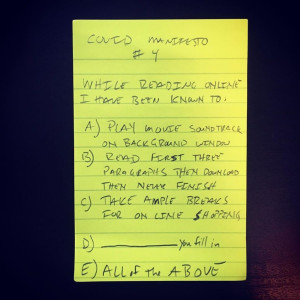 COVID MANIFESTO
# 4
WHILE READING ONLINE
I HAVE BEEN KNOWN TO:
A) PLAY MOVIE SOUNDTRACK
ON BACKGROUND WINDOW
B) READ FIRST THREE
PARAGRAPHS THEN DOWNLOAD
THEN NEVER FINISH
C) TAKE AMPLE BREAKS
FOR ON LINE SHOPPING
D) ____________ you fill in
E) ALL of the ABOVE